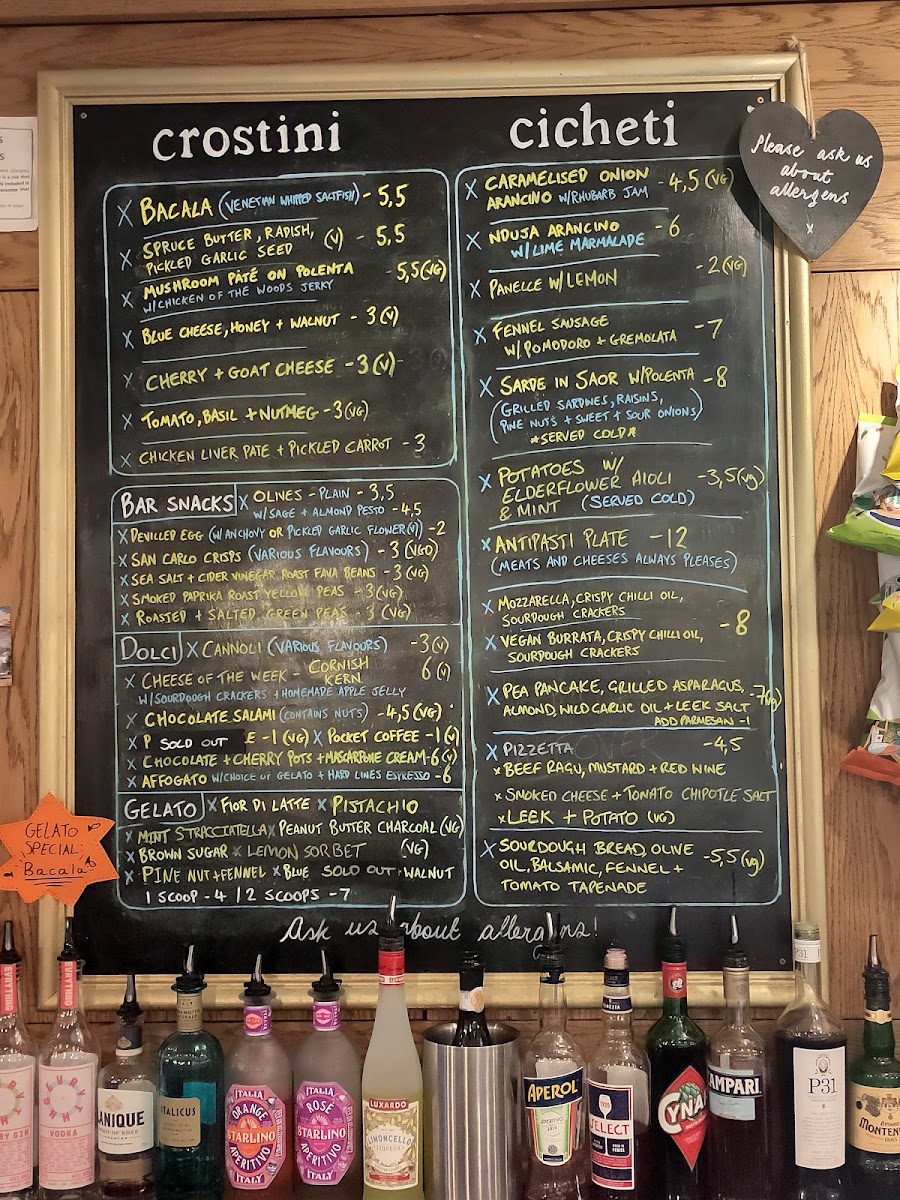 crostini
X BACALA (VENETIAN WHIPPED SALTFISH) - 5,5
X SPRUCE BUTTER, RADISH,
PICKLED GARLIC SEED (V) - 5,5
X MUSHROOM PÂTÉ ON POLENTA - 5,5 (VG)
W/CHICKEN OF THE WOODS JERKY
X BLUE CHEESE, HONEY + WALNUT - 3 (V)
X CHERRY + GOAT CHEESE - 3 (V)
X TOMATO, BASIL + NUTMEG - 3 (VG)
X CHICKEN LIVER PATE + PICKLED CARROT - 3
BAR SNACKS X OLINES - PLAIN - 3,5
W/SAGE + ALMOND PESTO - 4,5
X DEVILLED EGG (W/ANCHOVY OR PICKLED GARLIC FLOWER (V)) - 2
X SAN CARLO CRISPS (VARIOUS FLAVOURS) - 3 (VGO)
X SEA SALT + CIDER VINEGAR ROAST FAVA BEANS - 3 (VG)
X SMOKED PAPRIKA ROAST YELLOW PEAS - 3 (VG)
X ROASTED + SALTED GREEN PEAS - 3 (VG)
DOLCI X CANNOLI (VARIOUS FLAVOURS) - 3 (V)
X CHEESE OF THE WEEK - CORNISH
KERN 6 (V)
W/SOURDOUGH CRACKERS + HOMEMADE APPLE JELLY
X CHOCOLATE SALAMI (CONTAINS NUTS) - 4,5 (VG)
X P SOLD OUT E - 1 (VG) X POCKET COFFEE - 1 (V)
X CHOCOLATE + CHERRY POTS + MASCARPONE CREAM - 6 (V)
X AFFOGATO W/CHOICE OF GELATO + HARD LINES ESPRESSO - 6
GELATO X FIOR DI LATTE X PISTACHIO
X MINT STRACCIATELLA X PEANUT BUTTER CHARCOAL (VG)
X BROWN SUGAR X LEMON SORBET (VG)
X PINE NUT + FENNEL X BLUE SOLD OUT + WALNUT
1 SCOOP - 4 / 2 SCOOPS - 7
cicheti
X CARAMELISED ONION
ARANCINO W/RHUBARB JAM - 4,5 (VG)
X NDUJA ARANCINO
W/LIME MARMALADE - 6
X PANELLE W/LEMON - 2 (VG)
X FENNEL SAUSAGE
W/POMODORO + GREMOLATA - 7
X SARDE IN SAOR W/POLENTA - 8
(GRILLED SARDINES, RAISINS,
PINE NUTS + SWEET + SOUR ONIONS)
*SERVED COLD*
X POTATOES W/
ELDERFLOWER AIOLI
& MINT (SERVED COLD) - 3,5 (vg)
X ANTIPASTI PLATE - 12
(MEATS AND CHEESES ALWAYS PLEASES)
X MOZZARELLA, CRISPY CHILLI OIL,
SOURDOUGH CRACKERS
X VEGAN BURRATA, CRISPY CHILLI OIL,
SOURDOUGH CRACKERS - 8
X PEA PANCAKE, GRILLED ASPARAGUS,
ALMOND, WILD GARLIC OIL + LEEK SALT - 7 (vg)
ADD PARMESAN - 1
X PIZZETTA - 4,5
X BEEF RAGU, MUSTARD + RED WINE
X SMOKED CHEESE + TOMATO CHIPOTLE SALT
X LEEK + POTATO (VG)
X SOURDOUGH BREAD, OLIVE
OIL, BALSAMIC, FENNEL +
TOMATO TAPENADE - 5,5 (vg)
Ask us about allergens!
Please ask us
about
allergens
x
GELATO
SPECIAL:
Bacala
EVERYTHING
EVERYTHING
VODKA
ITALICUS
ORANGE
STARLINO
APERITIVO
ITALY
ITALIA
ROSÉ
STARLINO
APERITIVO
ITALY
LUXARDO
LIMONCELLO
APEROL
SELECT
CYNAR
CAMPARI
P31
P31
MONTENE